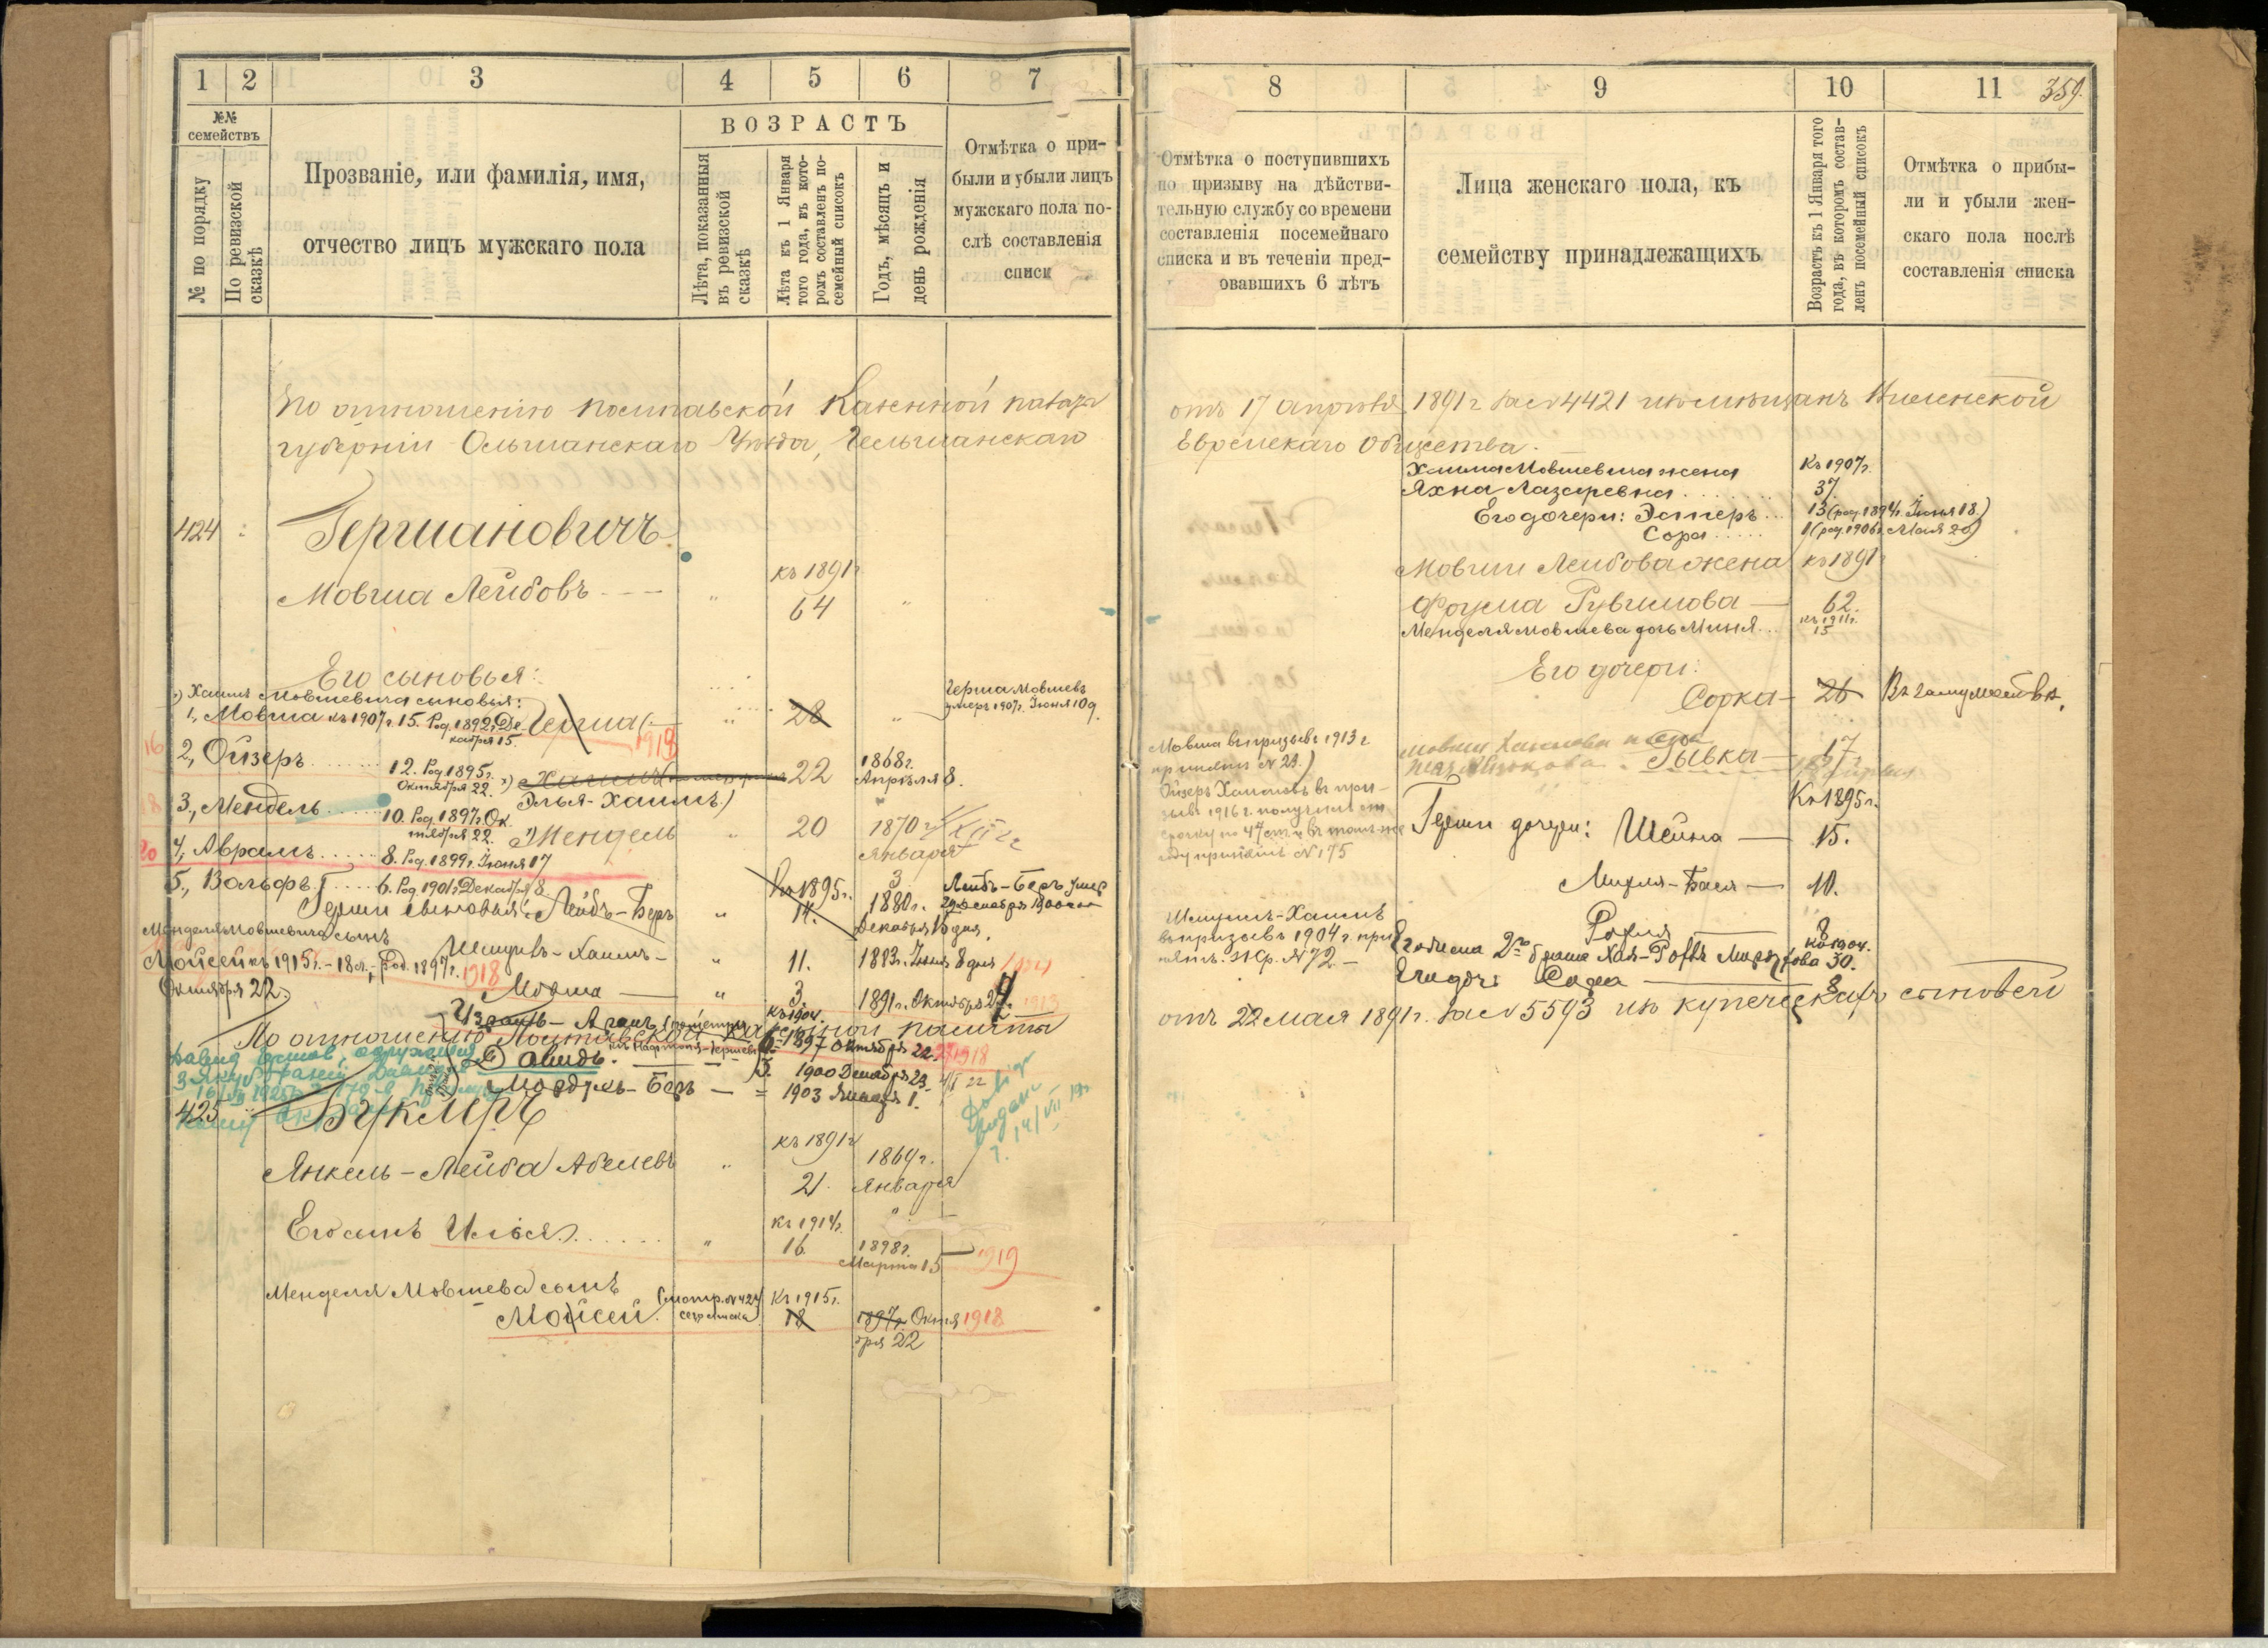 1 2 3 4 5 6 7
№№ семействъ
№ по порядку
По ревизской сказкѣ
Прозваніе, или фамилія, имя,
отчество лицъ мужскаго пола
ВОЗРАСТЪ
Лѣта, показанныя въ ревизской сказкѣ
Лѣта къ 1 Января того года, въ которомъ составленъ посемейный списокъ
Годъ, мѣсяцъ и день рожденія
Отмѣтка о при-
были и убыли лицъ
мужскаго пола по-
слѣ составленія
списк
По отношенію Полтавской Казенной палаты
губерніи Ошмянскаго Уѣзда, Гольшанскаго
424
Гершановичъ
къ 1891г
Мовша Лейбовъ 64
Его сыновья:
Хаима Мовшевича сыновья:
1, Мовша къ 1907г. 15. Род. 1892 г. Де-
кабря 15.
Герша 28
Герша Мовшевъ
умеръ 1907г. Іюня 10 д.
1913
16 2, Ойзеръ 12. Род. 1895г.
Октября 22.
22 1868г.
Апрѣля 8.
Элья-Хаимъ)
18 3, Мендель 10. Род. 1897г. Ок.
тября 22.
Мендель 20 1870 г.
Января
20 4, Авраамъ 8. Род. 1899г. Іюня 17
3
5, Вольфъ 6. Род. 1901г. Декабря 8.
Герши сыновья: Лейбъ-Беръ
Къ 1895г. 14.
1880г.
Декабря 15 дня.
Лейбъ-Беръ умер
29 Декабря 1900
Менделя Мовшевича сынъ
Мойсей къ 1915г. - 18 л. Род. 1897г. 1918
Октября 22.
Шмуель-Хаимъ 11. 1883г. Іюня 8 дня
Мовша 3 1891г. Октября 27.
къ 1904.
По отношенію Полтавской Казенной палаты
Давидъ 1897 Октября 22. 1918
1900 Декабря 23
Мордухъ-Беръ 1903 Января 1.
425
Букмеръ
къ 1891г
Янкель-Лейба Абелевъ 21. 1869г.
Января
Его сынъ Илья къ 1914г.
16. 1898г.
Марта 15
1919
Менделя Мовшева сынъ
Мойсей (смотр. № 424
сего списка)
Къ 1915г.
18 1897г. Октя
бря 22
1918
8 9 10 11 359.
Отмѣтка о поступившихъ
по призыву на дѣйстви-
тельную службу со времени
составленія посемейнаго
списка и въ теченіи пред-
овавшихъ 6 лѣтъ
Лица женскаго пола, къ
семейству принадлежащихъ
Возрастъ къ 1 Января того года, въ которомъ составленъ посемейный списокъ
Отмѣтка о прибы-
ли и убыли жен-
скаго пола послѣ
составленія списка
отъ 17 апрѣля 1891г за № 4421 изъ мѣщанъ Виленской
Еврейскаго Общества.
Хаима Мовшевича жена Къ 1907г.
Яхна Лазаревна 37.
Его дочери: Эстеръ 13 (род. 1894г. Іюня 18.)
Сора 1 (род. 1906г. Мая 20)
Мовши Лейбова жена къ 1891г
Фрума Рувимова 62.
Менделя Мовшева дочь Миня къ 1911г.
15
Его дочери:
Сорка 26 Въ замужествѣ.
Мовша въ призывъ 1913 г
принятъ № 22.)
Рывка 17
Ойзеръ Хаимовъ въ при-
зывъ 1916 г. получилъ от
срочку по 47 ст и въ томъ же
году принятъ № 175
Къ 1895г.
Герши дочери: Шейна 15.
Михля-Бася 10.
Рохля 8
Шмуель-Хаимъ
въ призывъ 1904 г. при
нятъ. Жр. № 72.
къ 1904.
30.
Его дочь Сора 8
отъ 22 мая 1891г. за № 5593 изъ купеческихъ сыновей